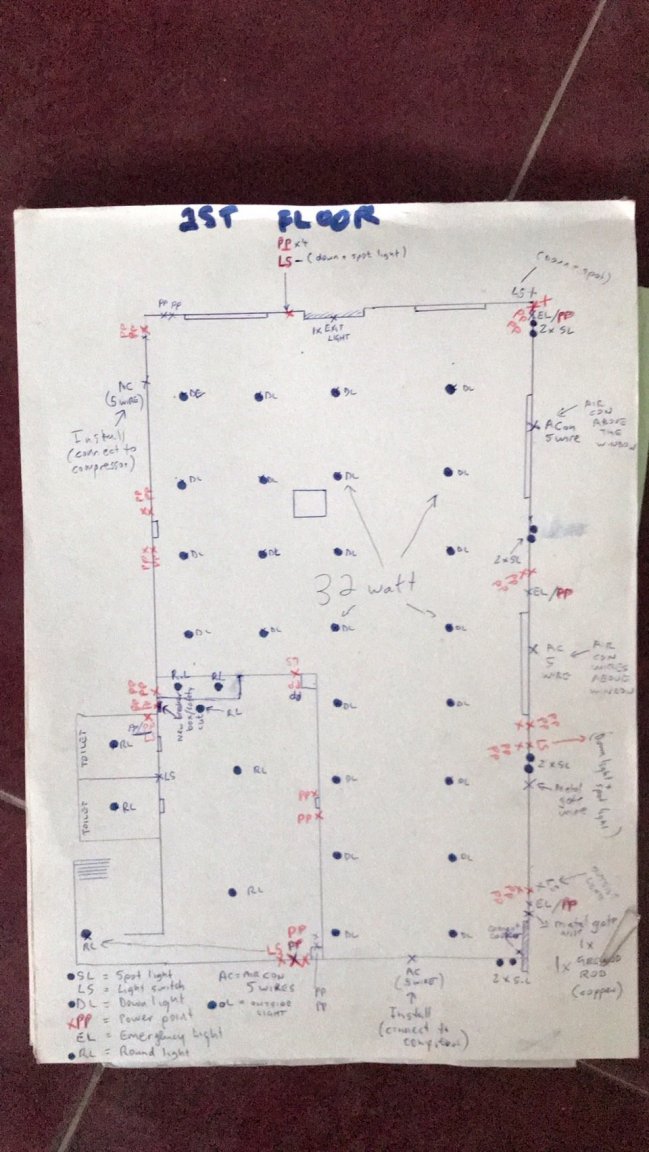 1ST FLOOR
PP x4
LS - (down + spot light)
(Down + spot)
LS
PP PP
1x EXIT
LIGHT
EL/PP
PP
2 x SL
AC
(5 WIRE)
Install
(connect to
compressor)
DL
DL
DL
DL
ACon
5 wire
AIR
CON
ABOVE
THE
WINDOW
DL
DL
DL
DL
PP PP
2 x SL
DL
DL
DL
DL
PP
PP PP
EL/PP
32 watt
DL
DL
DL
DL
AC
5
WIRE
AIR
CON
WIRES
ABOVE
WINDOW
LS
RL
RL
PP PP
PP PP
RL
new breaker
box/safety
cut
DL
DL
PP
PP
PP PP
LS
(Down light +
spot light)
TOILET
RL
RL
2 x SL
LS
DL
DL
metal
gate
wire
TOILET
RL
PP
PP
DL
DL
RL
PP PP
LS
EL/PP
metal gate
wire
1x
1x GROUND
ROD
(copper)
RL
LS
PP
PP
DL
DL
2 x SL
PP
PP
AC
(5 WIRE)
Install
(connect to
SL = Spot light
LS = Light switch
DL = Down light
XPP = Power point
EL = Emergency light
RL = Round light
AC = AIR CON
5 WIRES
OL = OUTSIDE
LIGHT